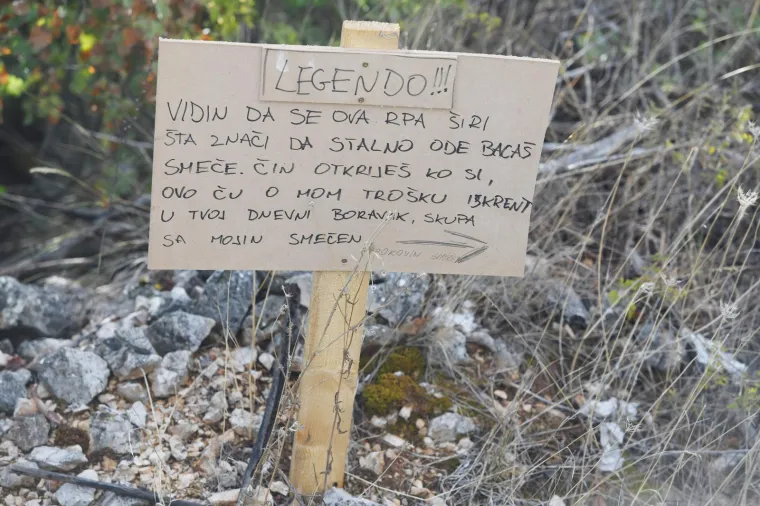 LEGENDO!!!
VIDIN DA SE OVA RPA ŠIRI
ŠTA ZNAČI DA STALNO ODE BACAŠ
SMEČE. ČIN OTKRIJEŠ KO SI,
OVO ČU O MOM TROŠKU ISKRENT
U TVOJ DNEVNI BORAVAK, SKUPA
SA MOJIN SMEČEN